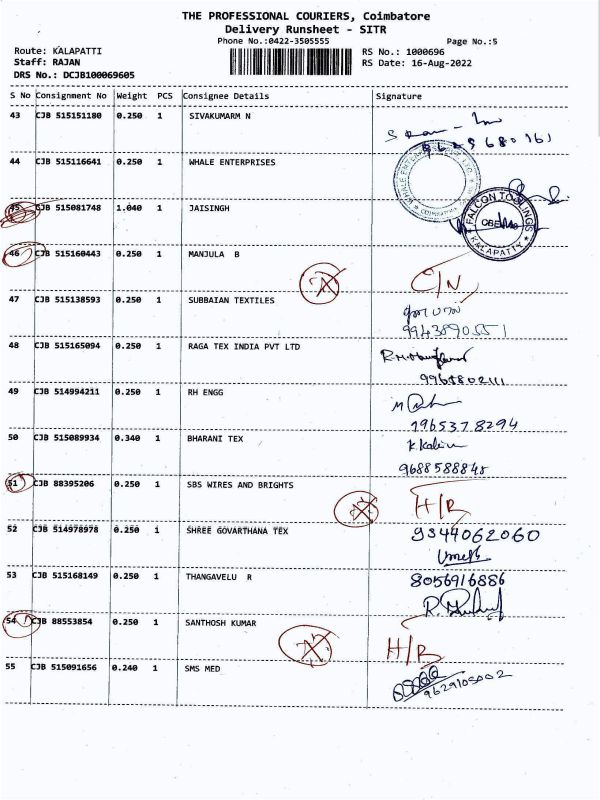 THE PROFESSIONAL COURIERS, Coimbatore
Delivery Runsheet - SITR
Phone No.:0422-3505555
Page No.:5
Route: KALAPATTI
RS No.: 1000696
Staff: RAJAN
RS Date: 16-Aug-2022
DRS No.: DCJB100069605
S No Consignment No Weight PCS Consignee Details Signature
43 CJB 515151180 0.250 1 SIVAKUMARM N
44 CJB 515116641 0.250 1 WHALE ENTERPRISES
45 CJB 515081748 1.040 1 JAISINGH
FALCON TOOLINGS
KALAPATTY
46 CJB 515160443 0.250 1 MANJULA B
C/N
47 CJB 515138593 0.250 1 SUBBAIAN TEXTILES
9943890551
48 CJB 515165094 0.250 1 RAGA TEX INDIA PVT LTD
49 CJB 514994211 0.250 1 RH ENGG
50 CJB 515089934 0.340 1 BHARANI TEX
9688588848
51 CJB 88395206 0.250 1 SBS WIRES AND BRIGHTS
H/B
52 CJB 514978978 0.250 1 SHREE GOVARTHANA TEX
9344062060
53 CJB 515168149 0.250 1 THANGAVELU R
8056916886
54 CJB 88553854 0.250 1 SANTHOSH KUMAR
H/B
55 CJB 515091656 0.240 1 SMS MED
9629105002